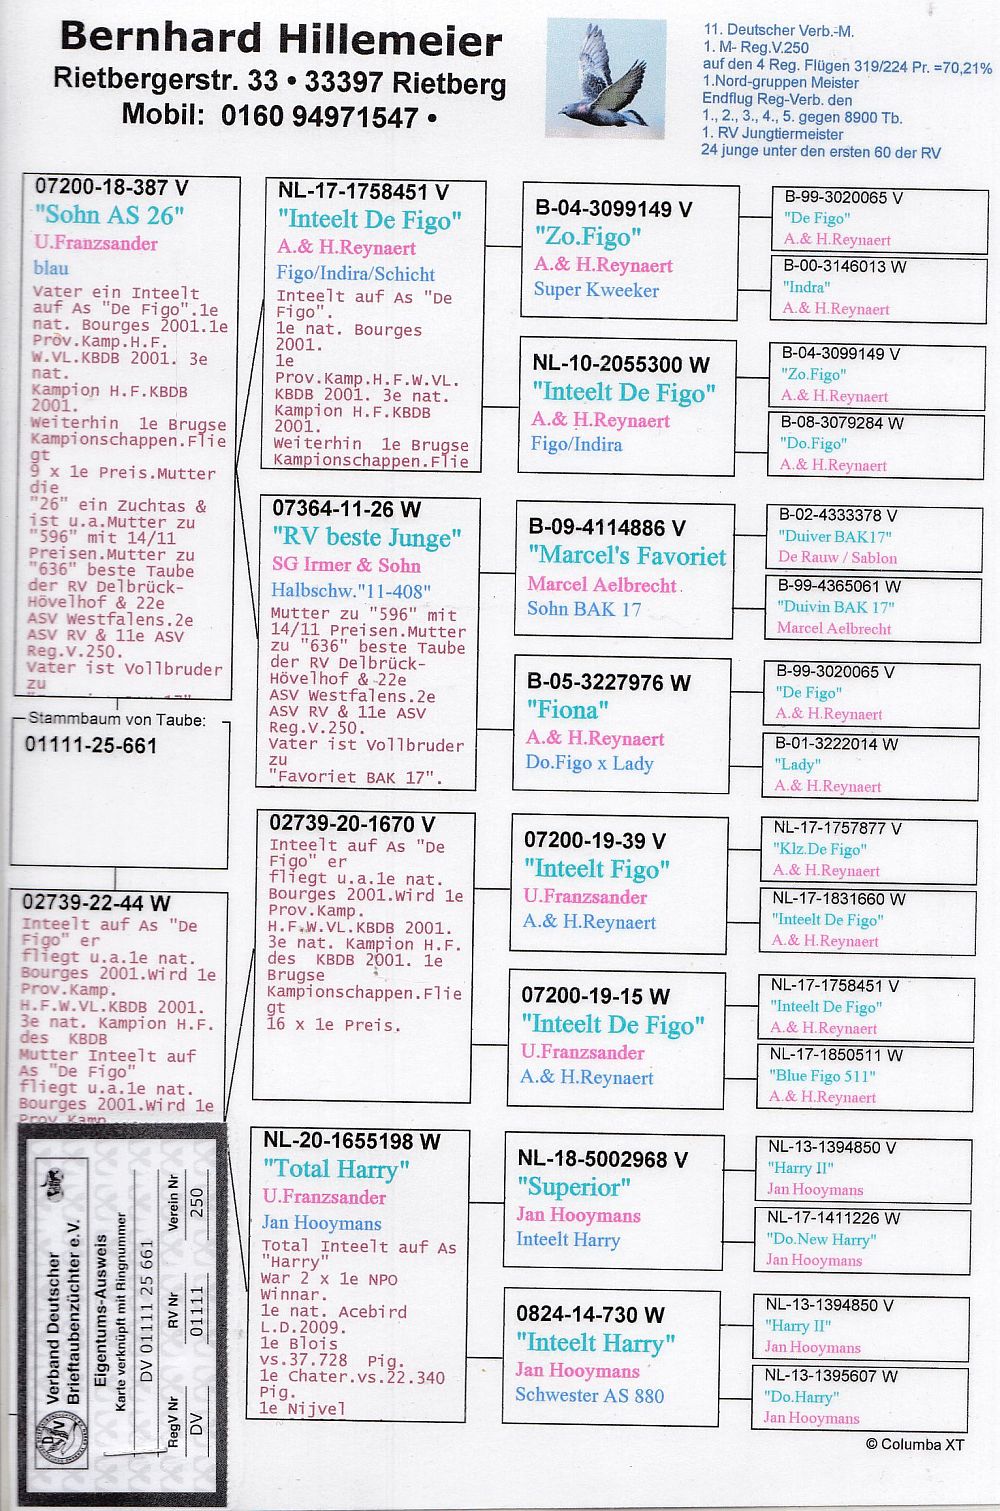 Bernhard Hillemeier
Rietbergerstr. 33 • 33397 Rietberg
Mobil: 0160 94971547 •
11. Deutscher Verb.-M.
1. M- Reg.V.250
auf den 4 Reg. Flügen 319/224 Pr. =70,21%
1.Nord-gruppen Meister
Endflug Reg-Verb. den
1., 2., 3., 4., 5. gegen 8900 Tb.
1. RV Jungtiermeister
24 junge unter den ersten 60 der RV
07200-18-387 V
"Sohn AS 26"
U.Franzsander
blau
Vater ein Inteelt
auf As "De Figo".1e
nat. Bourges 2001.1e
Prov.Kamp.H.F.
W.VL.KBDB 2001. 3e
nat.
Kampion H.F.KBDB
2001.
Weiterhin 1e Brugse
Kampionschappen.Flie
gt
9 x 1e Preis.Mutter
die
"26" ein Zuchtas &
ist u.a.Mutter zu
"596" mit 14/11
Preisen.Mutter zu
"636" beste Taube
der RV Delbrück-
Hövelhof & 22e
ASV Westfalens.2e
ASV RV & 11e ASV
Reg.V.250.
Vater ist Vollbruder
zu
Stammbaum von Taube:
01111-25-661
02739-22-44 W
Inteelt auf As "De
Figo" er
fliegt u.a.1e nat.
Bourges 2001.Wird 1e
Prov.Kamp.
H.F.W.VL.KBDB 2001.
3e nat. Kampion H.F.
des KBDB
Mutter Inteelt auf
As "De Figo"
fliegt u.a.1e nat.
Bourges 2001.Wird 1e
Prov.Kamp.
NL-17-1758451 V
"Inteelt De Figo"
A.& H.Reynaert
Figo/Indira/Schicht
Inteelt auf As "De
Figo".
1e nat. Bourges
2001.
1e
Prov.Kamp.H.F.W.VL.
KBDB 2001. 3e nat.
Kampion H.F.KBDB
2001.
Weiterhin 1e Brugse
Kampionschappen.Flie
07364-11-26 W
"RV beste Junge"
SG Irmer & Sohn
Halbschw."11-408"
Mutter zu "596" mit
14/11 Preisen.Mutter
zu "636" beste Taube
der RV Delbrück-
Hövelhof & 22e
ASV Westfalens.2e
ASV RV & 11e ASV
Reg.V.250.
Vater ist Vollbruder
zu
"Favoriet BAK 17".
02739-20-1670 V
Inteelt auf As "De
Figo" er
fliegt u.a.1e nat.
Bourges 2001.Wird 1e
Prov.Kamp.
H.F.W.VL.KBDB 2001.
3e nat. Kampion H.F.
des KBDB 2001. 1e
Brugse
Kampionschappen.Flie
gt
16 x 1e Preis.
NL-20-1655198 W
"Total Harry"
U.Franzsander
Jan Hooymans
Total Inteelt auf As
"Harry"
War 2 x 1e NPO
Winnar.
1e nat. Acebird
L.D.2009.
1e Blois
vs.37.728 Pig.
1e Chater.vs.22.340
Pig.
1e Nijvel
B-04-3099149 V
"Zo.Figo"
A.& H.Reynaert
Super Kweeker
NL-10-2055300 W
"Inteelt De Figo"
A.& H.Reynaert
Figo/Indira
B-09-4114886 V
"Marcel's Favoriet
Marcel Aelbrecht
Sohn BAK 17
B-05-3227976 W
"Fiona"
A.& H.Reynaert
Do.Figo x Lady
07200-19-39 V
"Inteelt Figo"
U.Franzsander
A.& H.Reynaert
07200-19-15 W
"Inteelt De Figo"
U.Franzsander
A.& H.Reynaert
NL-18-5002968 V
"Superior"
Jan Hooymans
Inteelt Harry
0824-14-730 W
"Inteelt Harry"
Jan Hooymans
Schwester AS 880
B-99-3020065 V
"De Figo"
A.& H.Reynaert
B-00-3146013 W
"Indra"
A.& H.Reynaert
B-04-3099149 V
"Zo.Figo"
A.& H.Reynaert
B-08-3079284 W
"Do.Figo"
A.& H.Reynaert
B-02-4333378 V
"Duiver BAK17"
De Rauw / Sablon
B-99-4365061 W
"Duivin BAK 17"
Marcel Aelbrecht
B-99-3020065 V
"De Figo"
A.& H.Reynaert
B-01-3222014 W
"Lady"
A.& H.Reynaert
NL-17-1757877 V
"Klz.De Figo"
A.& H.Reynaert
NL-17-1831660 W
"Inteelt De Figo"
A.& H.Reynaert
NL-17-1758451 V
"Inteelt De Figo"
A.& H.Reynaert
NL-17-1850511 W
"Blue Figo 511"
A.& H.Reynaert
NL-13-1394850 V
"Harry II"
Jan Hooymans
NL-17-1411226 W
"Do.New Harry"
Jan Hooymans
NL-13-1394850 V
"Harry II"
Jan Hooymans
NL-13-1395607 W
"Do.Harry"
Jan Hooymans
© Columba XT
Verband Deutscher
Brieftaubenzüchter e.V.
Eigentums-Ausweis
Karte verknüpft mit Ringnummer
DV 01111 25 661
RegV Nr RV Nr Verein Nr
DV 01111 250